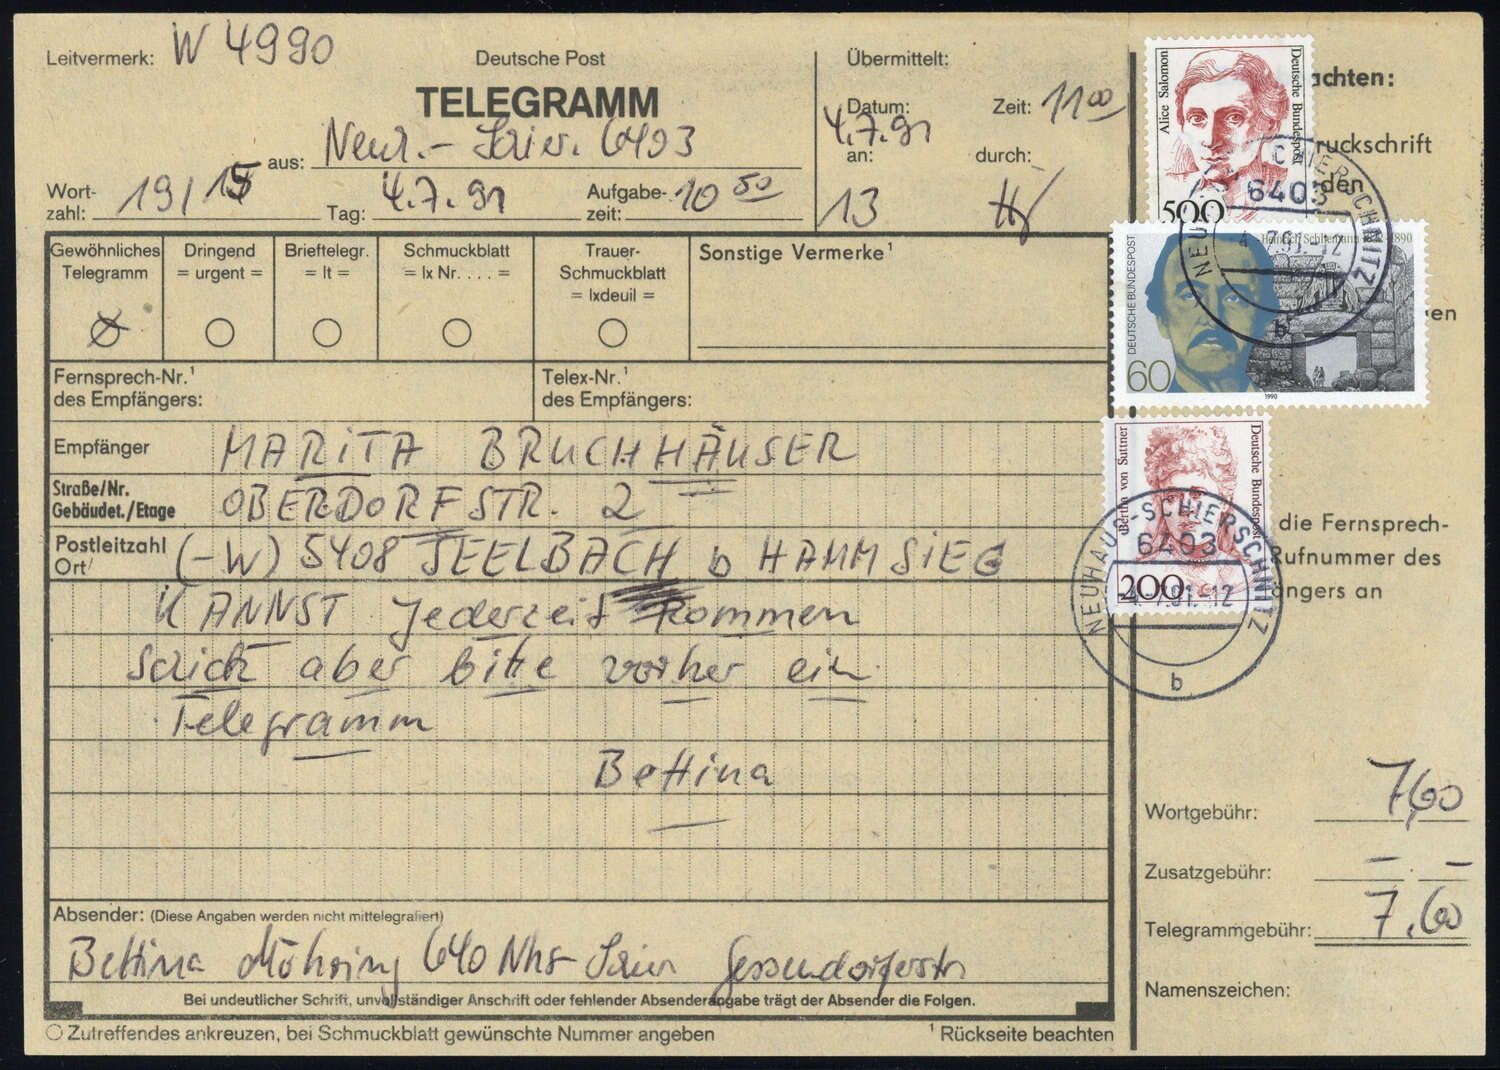 Leitvermerk: W 4990
Deutsche Post
TELEGRAMM
aus: Neuh.- Schier. 6403
Wort-
zahl: 19/15
Tag: 4.7.91
Aufgabe-
zeit: 10 50
Übermittelt:
Datum: 4.7.91
Zeit: 11 00
an: 13
durch:
Gewöhnliches
Telegramm
Dringend
= urgent =
Brieftelegr.
= lt =
Schmuckblatt
= lx Nr. . . . =
Trauer-
Schmuckblatt
= lxdeuil =
Sonstige Vermerke¹
Fernsprech-Nr.¹
des Empfängers:
Telex-Nr.¹
des Empfängers:
Empfänger MARITA BRUCHHÄUSER
Straße/Nr.
Gebäudet./Etage OBERDORFSTR. 2
Postleitzahl
Ort (-W) 5408 SEELBACH b HAMM SIEG
KANNST jederzeit kommen
schick aber bitte vorher ein
Telegramm
Bettina
Absender: (Diese Angaben werden nicht mittelegrafiert)
Bettina Möhring 640 Nhs-Schier
Bei undeutlicher Schrift, unvollständiger Anschrift oder fehlender Absenderangabe trägt der Absender die Folgen.
Zutreffendes ankreuzen, bei Schmuckblatt gewünschte Nummer angeben
¹ Rückseite beachten
Alice Salomon
Deutsche Bundespost
500
achten:
ruckschrift
den
en
NEUHAUS-SCHIERSCHNITZ
6403
4.-7.91.-12
b
DEUTSCHE BUNDESPOST
Heinrich Schliemann 1822-1890
60
1990
Bertha von Suttner
Deutsche Bundespost
200
NEUHAUS-SCHIERSCHNITZ
6403
-4.-7.91.-12
b
die Fernsprech-
Rufnummer des
ängers an
Wortgebühr: 7,60
Zusatzgebühr: – . –
Telegrammgebühr: 7.60
Namenszeichen: